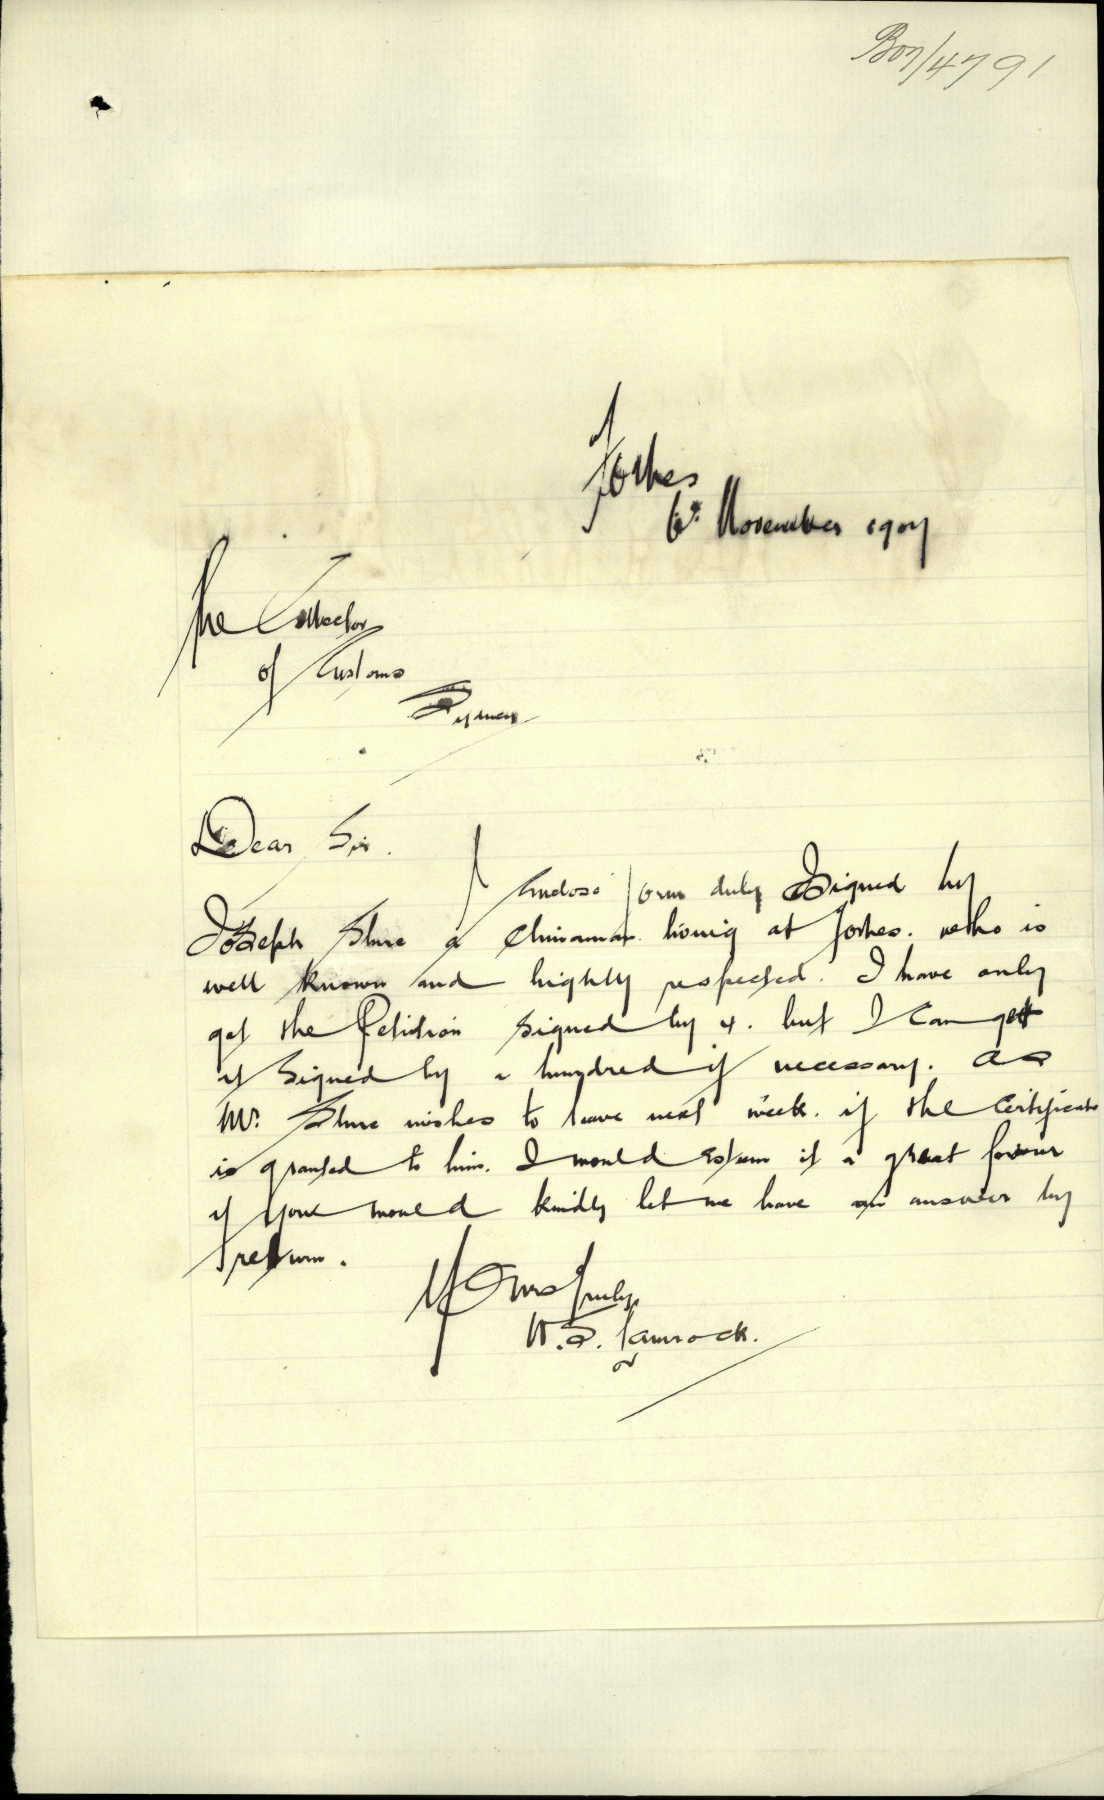 B07/4791
Forbes
6th November 1907
The Collector
of Customs
Sydney
Dear Sir.
I Enclose form duly Signed by
Joseph a Chinaman living at Forbes. who is
well known and highly respected. I have only
got the Petition signed by 4. but I can get
it Signed by a hundred if necessary. as
Mr. wishes to leave next week. if the Certificate
is granted to him. I would esteem it a great favour
if you would kindly let me have an answer by
return.
Yours truly
W. S.